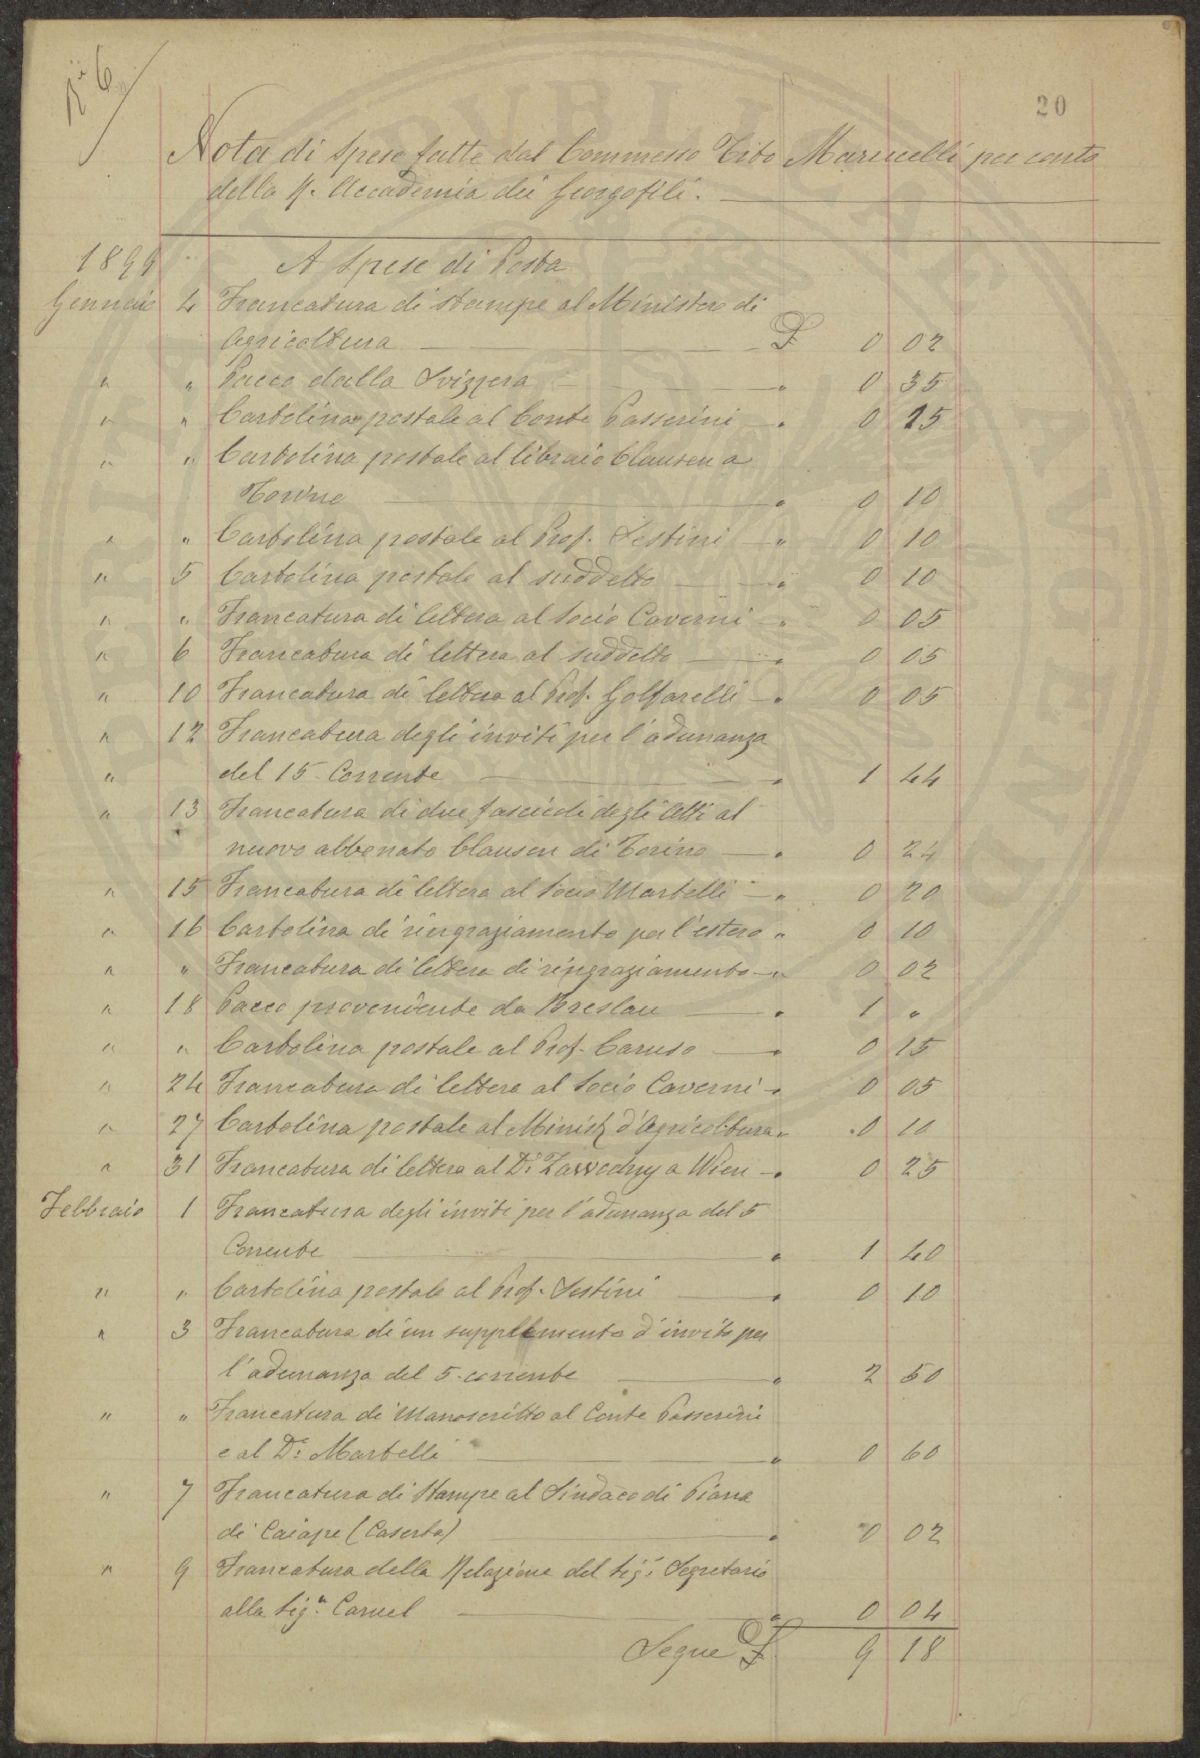 N° 6
20
Nota di Spese fatte dal Commesso Tito Marucelli per conto
della R. Accademia dei Georgofili.
1899 A Spese di Posta
Gennaio 4 Francatura di stampe al Ministero di
Agricoltura £ 0 02
" " Pacco dalla Svizzera " 0 35
" " Cartolina postale al Conte Passerini " 0 15
" " Cartolina postale al libraio Clausen a
Torino " 0 10
" " Cartolina postale al Prof. Sestini " 0 10
" 5 Cartolina postale al suddetto " 0 10
" " Francatura di lettera al Socio Caverni " 0 05
" 6 Francatura di lettera al suddetto " 0 05
" 10 Francatura di lettera al Prof. Golfarelli " 0 05
" 12 Francatura degli inviti per l'adunanza
" del 15 Corrente " 1 44
" 13 Francatura di due fascicoli degli Atti al
nuovo abbonato Clausen di Torino " 0 24
" 15 Francatura di lettera al Socio Martelli " 0 20
" 16 Cartolina di ringraziamento per l'estero " 0 10
" " Francatura di lettera di ringraziamento " 0 02
" 18 Pacco proveniente da Breslau " 1 "
" " Cartolina postale al Prof. Caruso " 0 15
" 24 Francatura di lettera al Socio Caverni " 0 05
" 27 Cartolina postale al Minist. d'Agricoltura " 0 10
" 31 Francatura di lettera al Dr. Zawodny a Wien " 0 25
Febbraio 1 Francatura degli inviti per l'adunanza del 5
Corrente " 1 40
" " Cartolina postale al Prof. Sestini " 0 10
" 3 Francatura di un supplemento d'invito per
l'adunanza del 5 corrente " 2 50
" " Francatura di Manoscritto al Conte Passerini
e al Dr. Martelli " 0 60
" 7 Francatura di Stampe al Sindaco di Piana
di Caiape (Caserta) " 0 02
" 9 Francatura della Relazione del Sigr. Segretario
alla Sigra. Caruel " 0 04
Segue £ 9 18